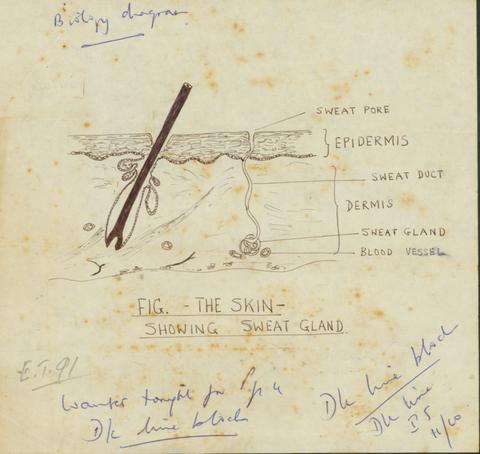 Biology diagram
SWEAT PORE
EPIDERMIS
SWEAT DUCT
DERMIS
SWEAT GLAND
BLOOD VESSEL
FIG. - THE SKIN -
SHOWING SWEAT GLAND.
E.T. 91
Wanted tonight for
D/c line block
D/c line block
D/c line